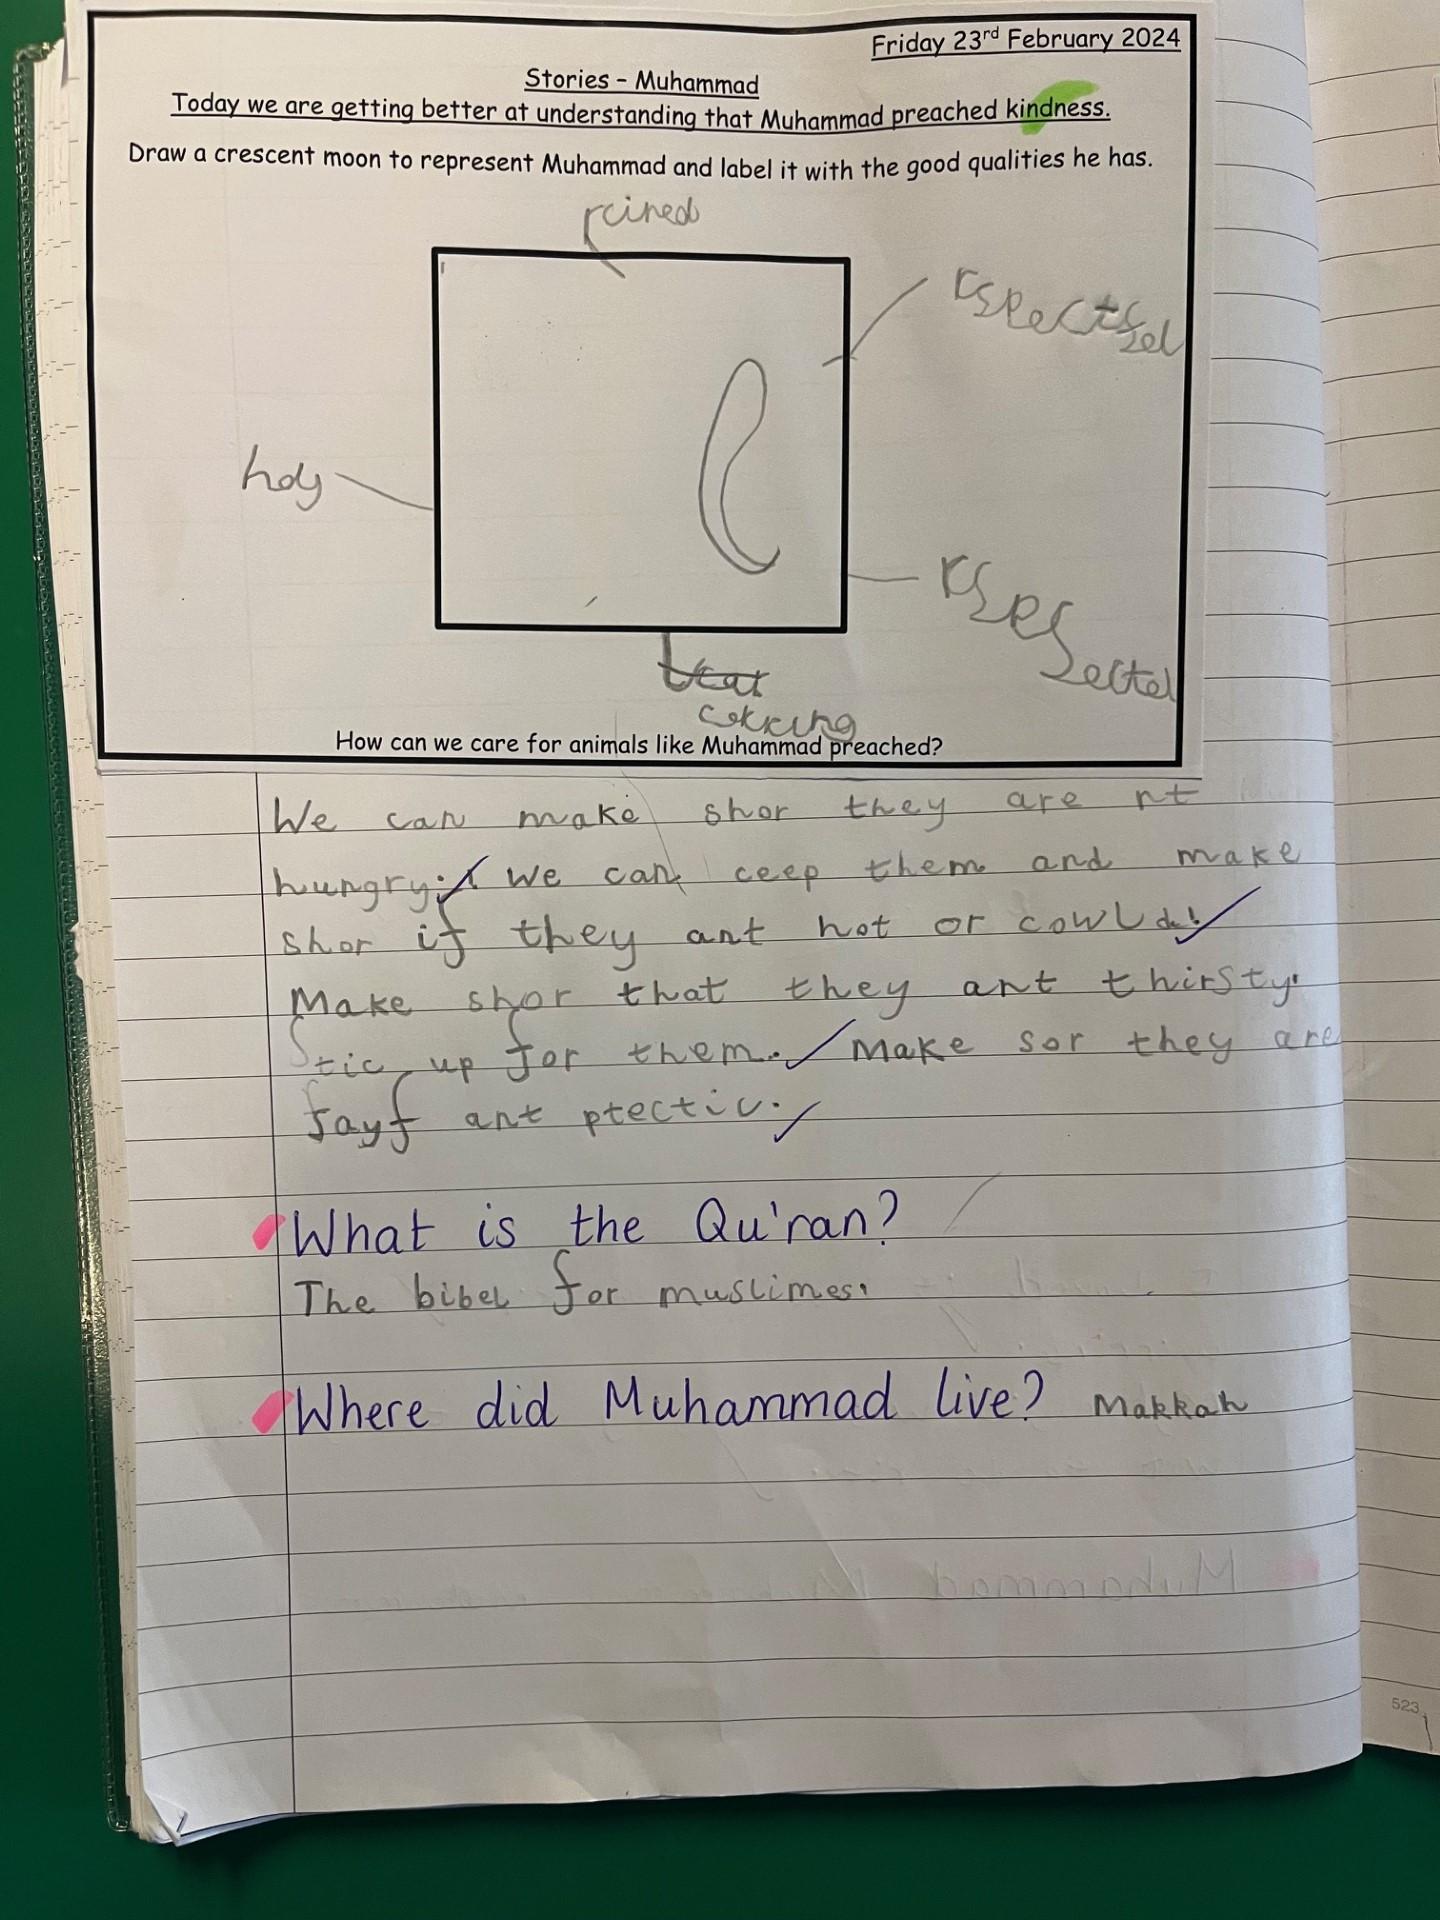 Friday 23rd February 2024
Stories - Muhammad
Today we are getting better at understanding that Muhammad preached kindness.
Draw a crescent moon to represent Muhammad and label it with the good qualities he has.
holy
How can we care for animals like Muhammad preached?
We can make shor they are nt
hungry. We can ceep them and make
shor if they ant hot or cowld.
Make shor that they ant thirsty.
Stic up for them. Make sor they are
sayf ant ptectiv.
What is the Qu'ran?
The bibel for muslimes.
Where did Muhammad live? Makkah
523